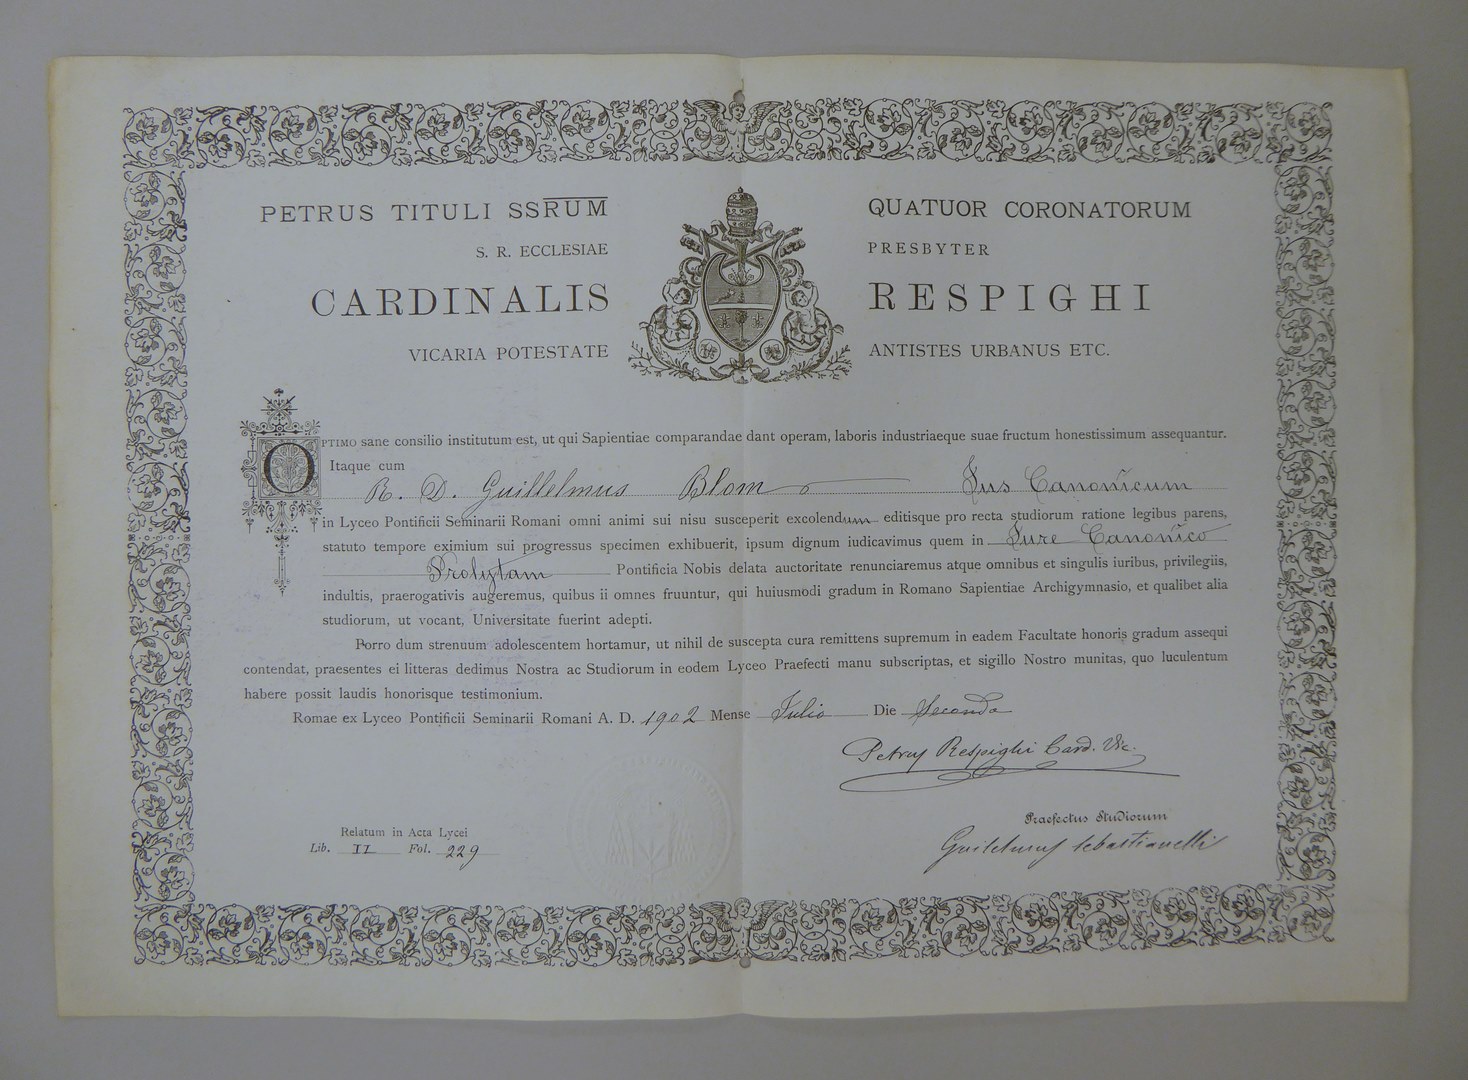 PETRUS TITULI SSRUM QUATUOR CORONATORUM
S. R. ECCLESIAE PRESBYTER
CARDINALIS RESPIGHI
VICARIA POTESTATE ANTISTES URBANUS ETC.
OPTIMO sane consilio institutum est, ut qui Sapientiae comparandae dant operam, laboris industriaeque suae fructum honestissimum assequantur.
Itaque cum
R. D. Guillelmus Blom Jus Canonicum
in Lyceo Pontificii Seminarii Romani omni animi sui nisu susceperit excolendum editisque pro recta studiorum ratione legibus parens,
statuto tempore eximium sui progressus specimen exhibuerit, ipsum dignum iudicavimus quem in Jure Canonico
Prolytam Pontificia Nobis delata auctoritate renunciaremus atque omnibus et singulis iuribus, privilegiis,
indultis, praerogativis augeremus, quibus ii omnes fruuntur, qui huiusmodi gradum in Romano Sapientiae Archigymnasio, et qualibet alia
studiorum, ut vocant, Universitate fuerint adepti.
Porro dum strenuum adolescentem hortamur, ut nihil de suscepta cura remittens supremum in eadem Facultate honoris gradum assequi
contendat, praesentes ei litteras dedimus Nostra ac Studiorum in eodem Lyceo Praefecti manu subscriptas, et sigillo Nostro munitas, quo luculentum
habere possit laudis honorisque testimonium.
Romae ex Lyceo Pontificii Seminarii Romani A. D. 1902 Mense Julio Die Secunda
Petrus Respighi Card. Vic.
Praefectus Studiorum
Guilelmus Sebastianelli
Relatum in Acta Lycei
Lib. II Fol. 229